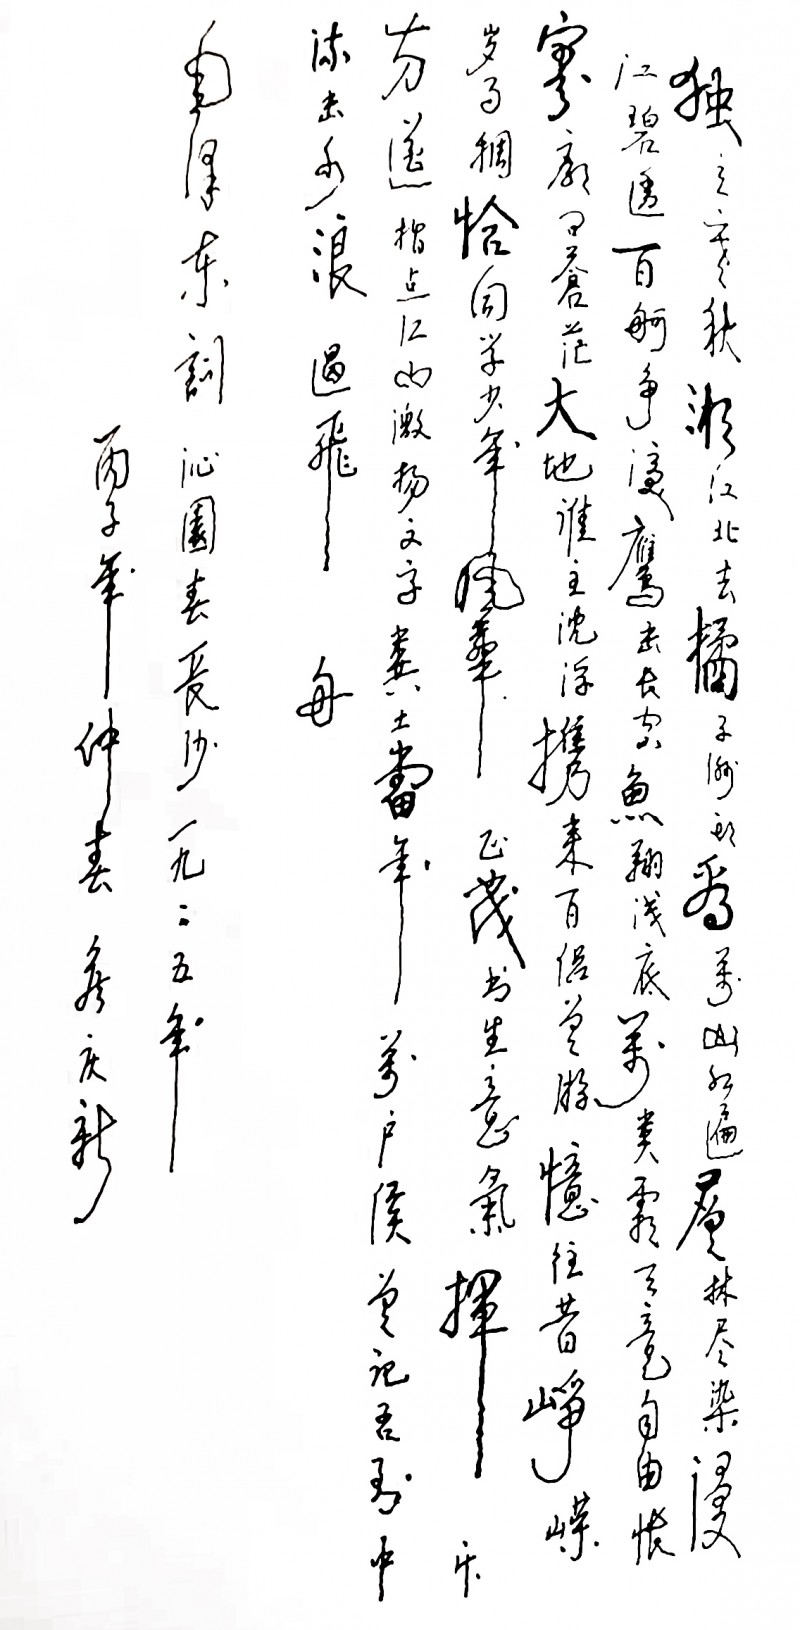 独立寒秋湘江北去橘子洲头看萬山红遍層林尽染漫
江碧透百舸争流鷹击长空魚翔浅底萬类霜天竞自由怅
寥廓问蒼茫大地谁主沈浮携来百侣曾游憶往昔峥嵘
岁月稠恰同学少年风華正茂书生意氣揮斥
方遒指点江山激扬文字粪土當年萬户侯曾记否到中
流击水浪遏飛舟
毛泽东詞沁園春長沙一九二五年
丙子年仲春庆新